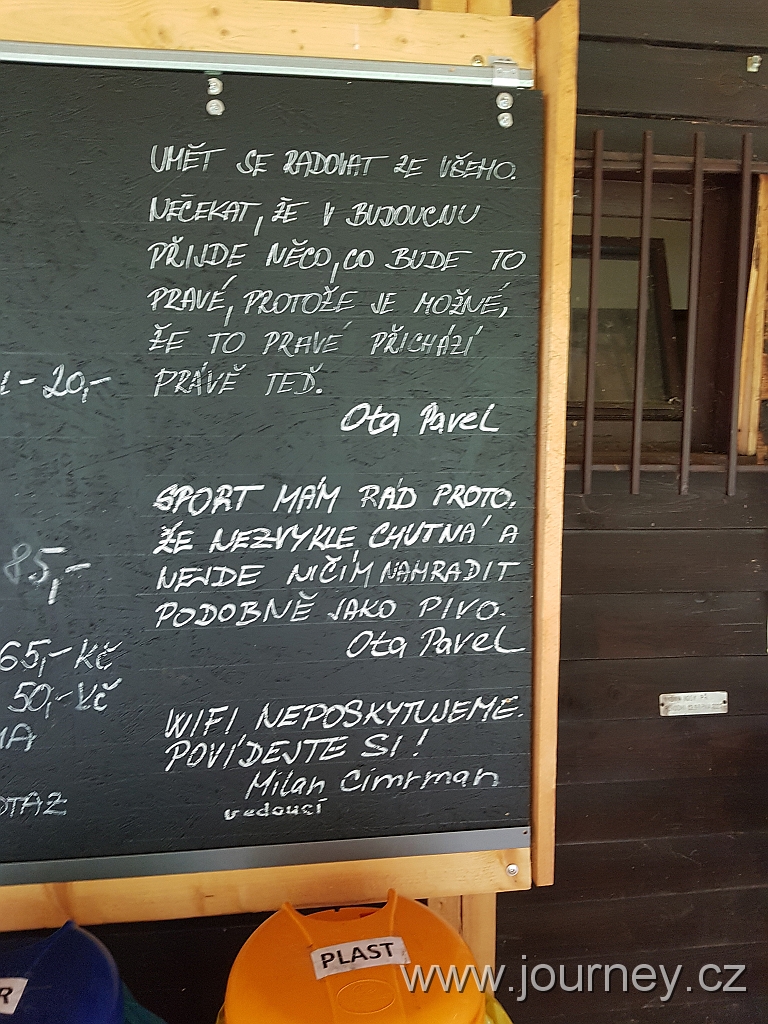 UMĚT SE RADOVAT ZE VŠEHO.
NEČEKAT, ŽE V BUDOUCNU
PŘIJDE NĚCO, CO BUDE TO
PRAVÉ, PROTOŽE JE MOŽNÉ,
ŽE TO PRAVÉ PŘICHÁZÍ
PRÁVĚ TEĎ.
Ota Pavel
SPORT MÁM RÁD PROTO,
ŽE NEZVYKLE CHUTNÁ A
NEJDE NIČÍM NAHRADIT
PODOBNĚ JAKO PIVO.
Ota Pavel
WIFI NEPOSKYTUJEME.
POVÍDEJTE SI!
Milan Cimrman
vedoucí
- 20,-
85,-
65,- Kč
50,- Kč
PLAST
R
www.journey.cz